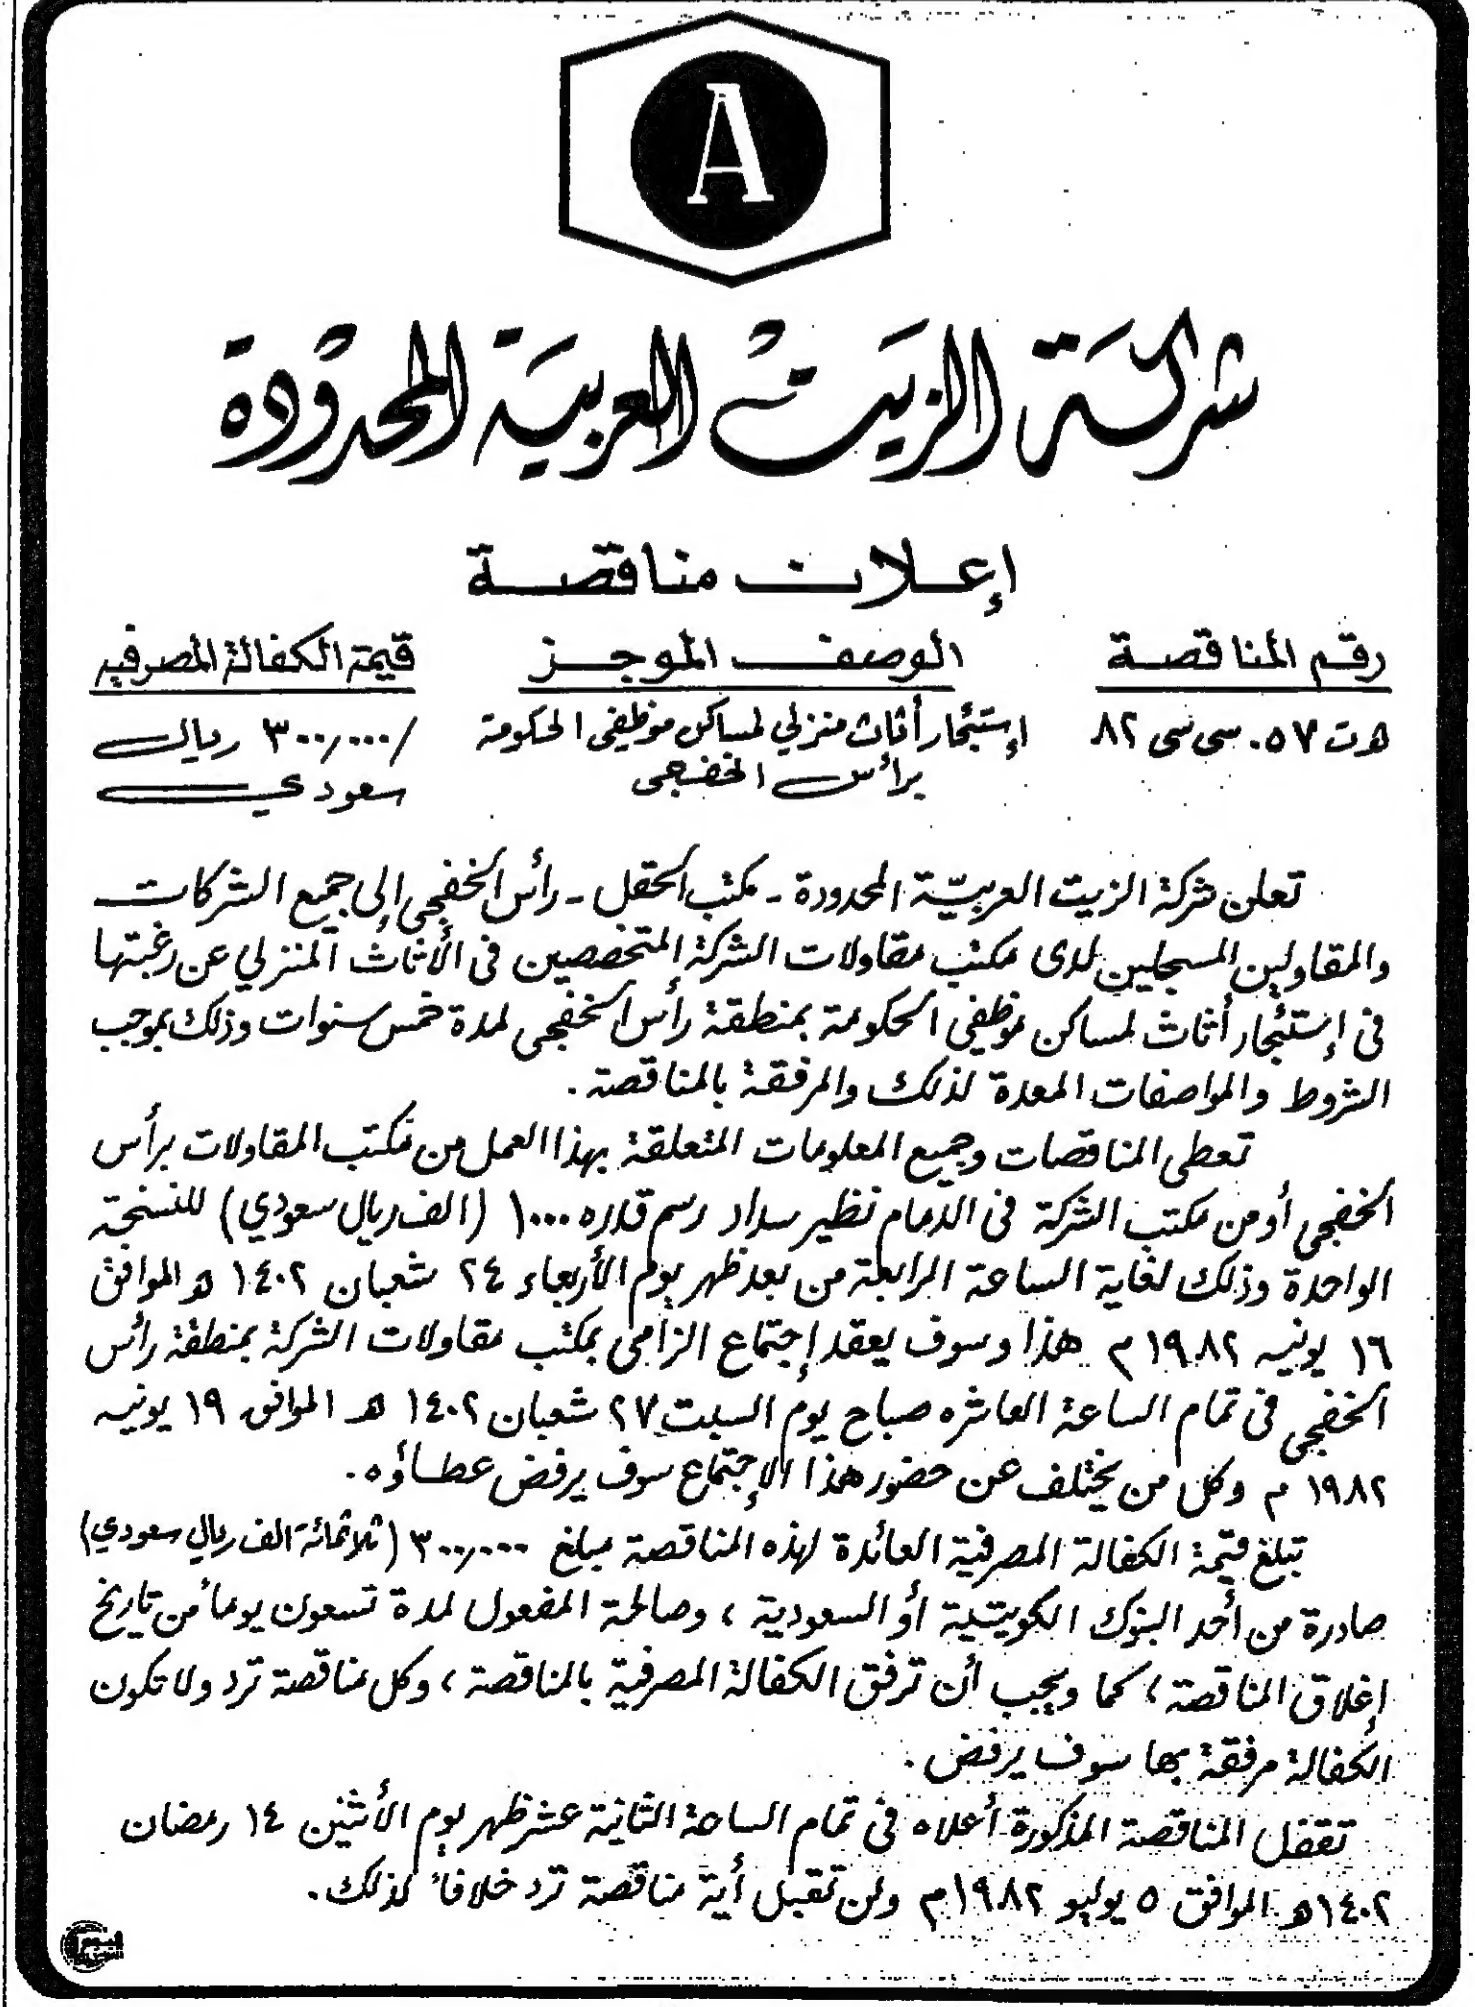 A
شركة الزيت العربية المحدودة
إعلان مناقصة
رقم المناقصة الوصف الموجز قيمة الكفالة المصرفية
هت ٠٥٧ سي سي ٨٢ إستئجار أثاث منزلي لمساكن موظفي الحكومة ٣٠٠٫٠٠٠/ ريال
برأس الخفجي سعودي
تعلن شركة الزيت العربية المحدودة - مكتب الحقل - رأس الخفجي إلى جميع الشركات
والمقاولين المسجلين لدى مكتب مقاولات الشركة المتخصصين في الأثاث المنزلي عن رغبتها
في إستئجار أثاث لمساكن موظفي الحكومة بمنطقة رأس الخفجي لمدة خمس سنوات وذلك بموجب
الشروط والمواصفات المعدة لذلك والمرفقة بالمناقصة .
تعطى المناقصات وجميع المعلومات المتعلقة بهذا العمل من مكتب المقاولات برأس
الخفجي أو من مكتب الشركة في الدمام نظير سداد رسم قدره ١٠٠٠ (الف ريال سعودي) للنسخة
الواحدة وذلك لغاية الساعة الرابعة من بعد ظهر يوم الأربعاء ٢٤ شعبان ١٤٠٢ هـ الموافق
١٦ يونيه ١٩٨٢ م هذا وسوف يعقد إجتماع الزامي بمكتب مقاولات الشركة بمنطقة رأس
الخفجي في تمام الساعة العاشره صباح يوم السبت ٢٧ شعبان ١٤٠٢ هـ الموافق ١٩ يونيه
١٩٨٢ م وكل من يختلف عن حضور هذا الإجتماع سوف يرفض عطاؤه .
تبلغ قيمة الكفالة المصرفية العائدة لهذه المناقصة مبلغ ٣٠٠٫٠٠٠ (ثلاثمائة الف ريال سعودي)
صادرة من أحد البنوك الكويتية أو السعودية ، وصالحة المفعول لمدة تسعون يوماً من تاريخ
إغلاق المناقصة ، كما ويجب أن ترفق الكفالة المصرفية بالمناقصة ، وكل مناقصة ترد ولا تكون
الكفالة مرفقة بها سوف يرفض .
تقفل المناقصة المذكورة أعلاه في تمام الساعة الثانية عشر ظهر يوم الأثنين ١٤ رمضان
١٤٠٢هـ الموافق ٥ يوليو ١٩٨٢م ولن تقبل أية مناقصة ترد خلافاً لذلك .